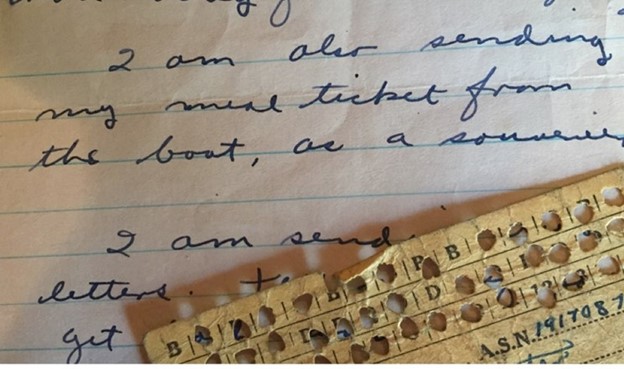 I am also sending
my meal ticket from
the boat, as a souvenir
I am send
letters.
get
B
P B
D
B
A.S.N. 1917087